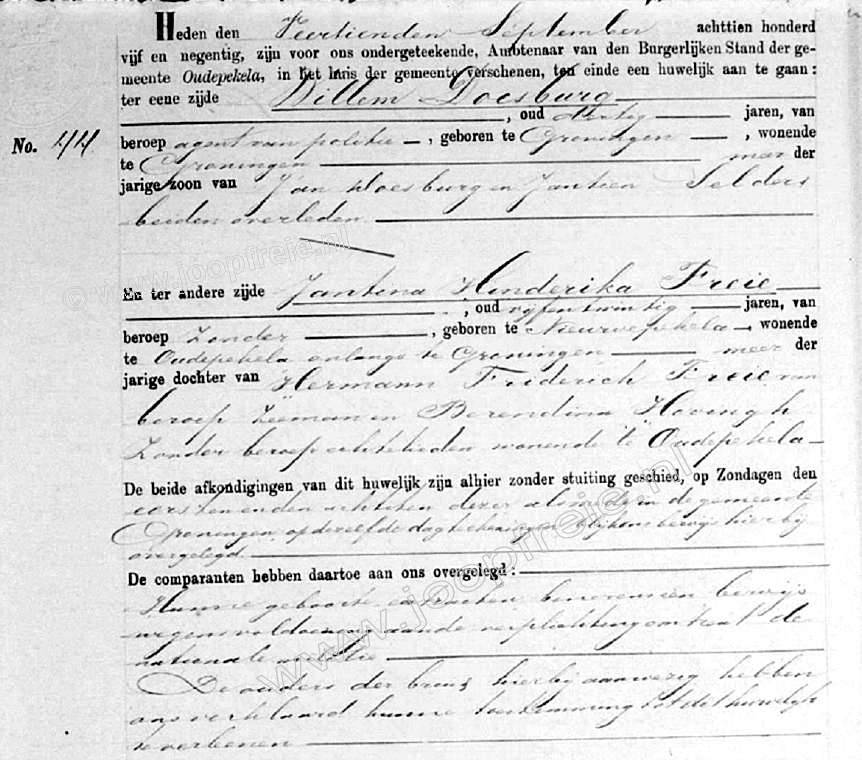 Heden den Veertienden September achttien honderd
vijf en negentig, zijn voor ons ondergeteekende, Ambtenaar van den Burgerlijken Stand der ge-
meente Oudepekela, in het huis der gemeente verschenen, ten einde een huwelijk aan te gaan:
ter eene zijde Willem Doesburg
, oud dertig jaren, van
No. 44 beroep agent van politie, geboren te Groningen, wonende
te Groningen meer der
jarige zoon van Jan Doesburg en Jantien Selders
beiden overleden
En ter andere zijde Jantina Hinderika Freie
, oud vijfentwintig jaren, van
beroep Zonder, geboren te Nieuwepekela, wonende
te Oudepekela onlangs te Groningen meer der
jarige dochter van Hermann Friderich Freie van
beroep Zeeman en Berendina Hovingh
Zonder beroep echtelieden wonende te Oudepekela
De beide afkondigingen van dit huwelijk zijn alhier zonder stuiting geschied, op Zondagen den
eersten en den achtsten dezer alsmede in de gemeente
Groningen op dezelfde dagteekeningen blijkens bewijs hierbij
overgelegd
De comparanten hebben daartoe aan ons overgelegd:
Hunne geboorte extracten benevens een bewijs
wegens voldoening aan de verplichting omtrent de
nationale militie
De ouders der bruid hierbij aanwezig hebben
ons verklaard hunne toestemming tot dit huwelijk
te verleenen
© www.joopfreie.nl
www.joopfreie.nl